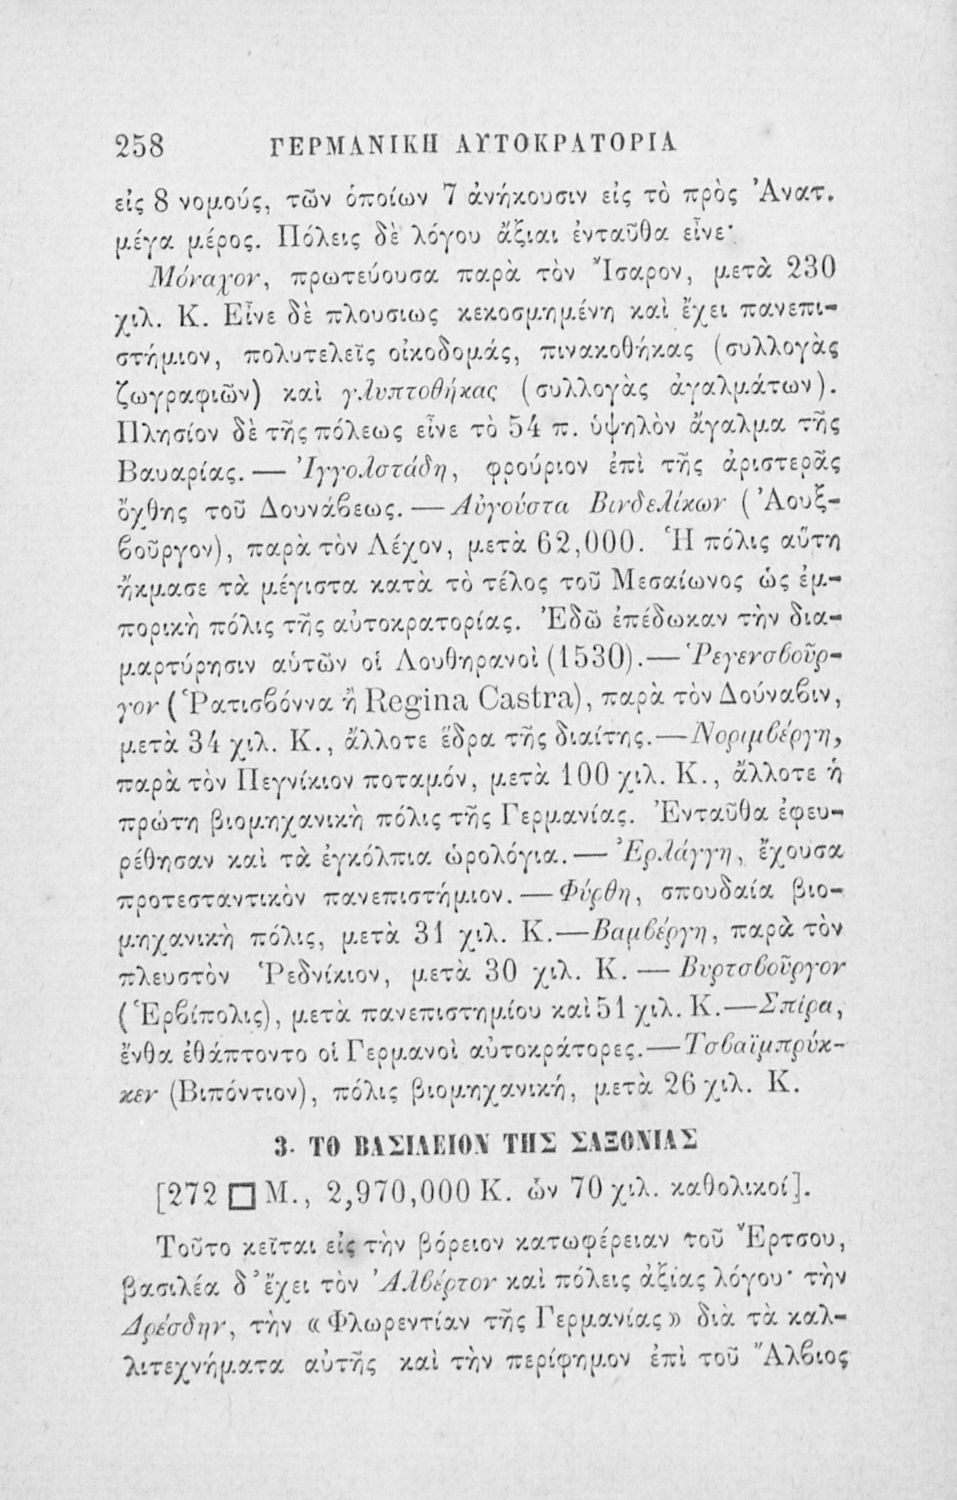 258 ΓΕΡΜΑΝΙΚΗ ΑΥΤΟΚΡΑΤΟΡΙΑ
εἰς 8 νομούς, τῶν ὁποίων 7 ἀνήκουσιν εἰς τὸ πρὸς Ἀνατ.
μέγα μέρος. Πόλεις δὲ λόγου ἄξιαι ἐνταῦθα εἶνε·
Μόναχον, πρωτεύουσα παρὰ τὸν Ἴσαρον, μετὰ 230
χιλ. Κ. Εἶνε δὲ πλουσιως κεκοσμημένη καὶ ἔχει πανεπι-
στήμιον, πολυτελεῖς οἰκοδομάς, πινακοθήκας (συλλογὰς
ζωγραφιῶν) καὶ γλυπτοθήκας (συλλογὰς ἀγαλμάτων).
Πλησίον δὲ τῆς πόλεως εἶνε τὸ 54 π. ὑψηλὸν ἄγαλμα τῆς
Βαυαρίας. — Ἰγγολστάδη, φρούριον ἐπὶ τῆς ἀριστερᾶς
ὄχθης τοῦ Δουνάβεως. — Αὐγούστα Βινδελίκων (Ἀουξ-
βοῦργον), παρὰ τὸν Λέχον, μετὰ 62,000. Ἡ πόλις αὕτη
ἤκμασε τὰ μέγιστα κατὰ τὸ τέλος τοῦ Μεσαίωνος ὡς ἐμ-
πορικὴ πόλις τῆς αὐτοκρατορίας. Ἐδῶ ἐπέδωκαν τὴν δια-
μαρτύρησιν αὑτῶν οἱ Λουθηρανοὶ (1530). — Ῥεγενσβοῦρ-
γον (Ῥατισβόννα ἢ Regina Castra), παρὰ τὸν Δούναβιν,
μετὰ 34 χιλ. Κ., ἄλλοτε ἕδρα τῆς διαίτης. — Νοριμβέργη,
παρὰ τὸν Πεγνίκιον ποταμόν, μετὰ 100 χιλ. Κ., ἄλλοτε ἡ
πρώτη βιομηχανικὴ πόλις τῆς Γερμανίας. Ἐνταῦθα ἐφευ-
ρέθησαν καὶ τὰ ἐγκόλπια ὡρολόγια. — Ἐρλάγγη, ἔχουσα
προτεσταντικὸν πανεπιστήμιον. — Φύρθη, σπουδαία βιο-
μηχανικὴ πόλις, μετὰ 31 χιλ. Κ. — Βαμβέργη, παρὰ τὸν
πλευστὸν Ῥεδνίκιον, μετὰ 30 χιλ. Κ. — Βυρτσβοῦργον
(Ἑρβίπολις), μετὰ πανεπιστημίου καὶ 51 χιλ. Κ. — Σπίρα,
ἔνθα ἐθάπτοντο οἱ Γερμανοὶ αὐτοκράτορες. — Τσβαϊμπρύκ-
κεν (Βιπόντιον), πόλις βιομηχανική, μετὰ 26 χιλ. Κ.
3. ΤΟ ΒΑΣΙΛΕΙΟΝ ΤΗΣ ΣΑΞΟΝΙΑΣ
[272 □ Μ., 2,970,000 Κ. ὧν 70 χιλ. καθολικοί].
Τοῦτο κεῖται εἰς τὴν βόρειον κατωφέρειαν τοῦ Ἔρτσου,
βασιλέα δ᾽ ἔχει τὸν Ἀλβέρτον καὶ πόλεις ἀξίας λόγου· τὴν
Δρέσδην, τὴν «Φλωρεντίαν τῆς Γερμανίας» διὰ τὰ καλ-
λιτεχνήματα αὐτῆς καὶ τὴν περίφημον ἐπὶ τοῦ Ἄλβιος